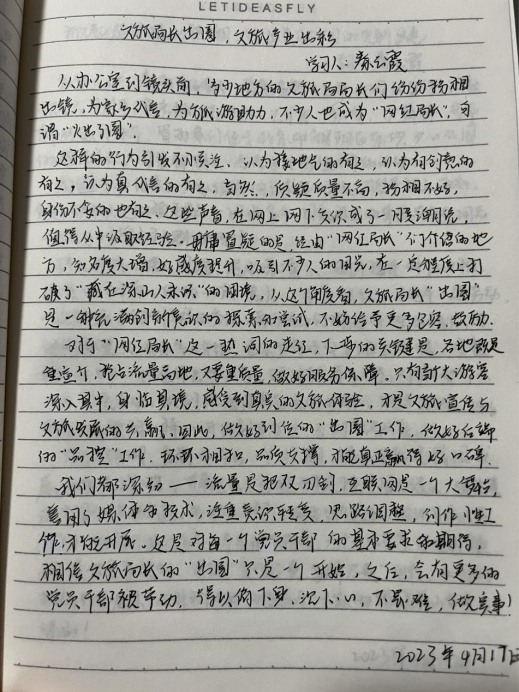 LETIDEASFLY
文旅局长出圈，文旅产业出彩
学习人：秦云霞
从办公室到镜头前，当多地方的文旅局局长们纷纷扮相
出镜，为家乡代言，为旅游助力，不少人也成为“网红局长”，可
谓“火出了圈”。
这样的行为引发不小关注、认为接地气的有之，认为有创意的
有之，认为真代言的有之，当然，质疑质量不高，扮相不好，
身份不妥的也有之，这些声音，在网上网下交织成了一股潮流，
值得从中汲取经验。毋庸置疑的是，经由“网红局长”们介绍的地
方，知名度大增，好感度提升，吸引不少人的目光，在一定程度上打
破了“藏在深山人未识”的困境，从这个角度看，文旅局长“出圈”
是一种充满创新意识的探索和尝试，不妨给予更多包容，鼓励。
对于“网红局长”这一热词的走红，下一步的关键是，各地既要
重宣介，抢占流量高地，又要重质量，做好服务保障。只有让广大游客
深入其中，身临其境，感受到真实的文旅体验，才是文旅宣传与
文旅发展的共赢。因此，做好到位的“出圈”工作，做好后端
的“品控”工作，环环相扣，品质支撑，才能真正赢得好口碑。
我们都深知——流量是把双刃剑，互联网是一个大舞台，
善用了媒体和技术，注重意识转变，思路调整，创作性工
作才能开展。这是对每一个党员干部的基本要求和期待，
相信文旅局长的“出圈”只是一个开始，之后，会有更多的
党员干部被带动，得以俯下身、沉下心，不畏难，做实事！
2023年4月17日